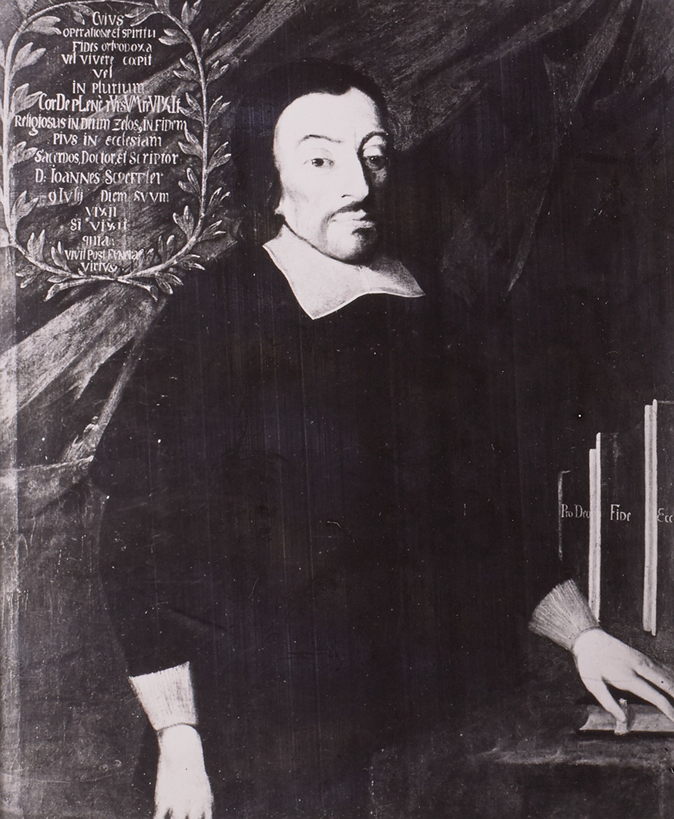 Cuius
operatione et spiritu
Fides orthodoxa
vel vivere cœpit
vel
in plurium
Cor De pLenè
Religiosus in Deum Zelos, in Fidem
PIVS in ecclesiam
Sacerdos, Doctor, et Scriptor
D: Ioannes Scheffler
9 Iulij Diem SVVM
VIXIT
Si Vixit
quia
vivit Post Funera
Virtus
Pro Deo
Fide
Ecc